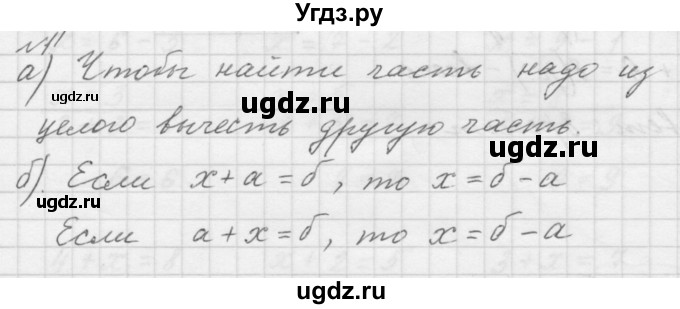 Угдз.ру
№1
а) Чтобы найти часть надо из
ugdz.ru ugdz.ru
целого вычесть другую часть.
ugdz.ru
б). Если х+а=б, то х=б-а
ugdz.ru
Если а+х=б, то х=б-а
ugdz.ru